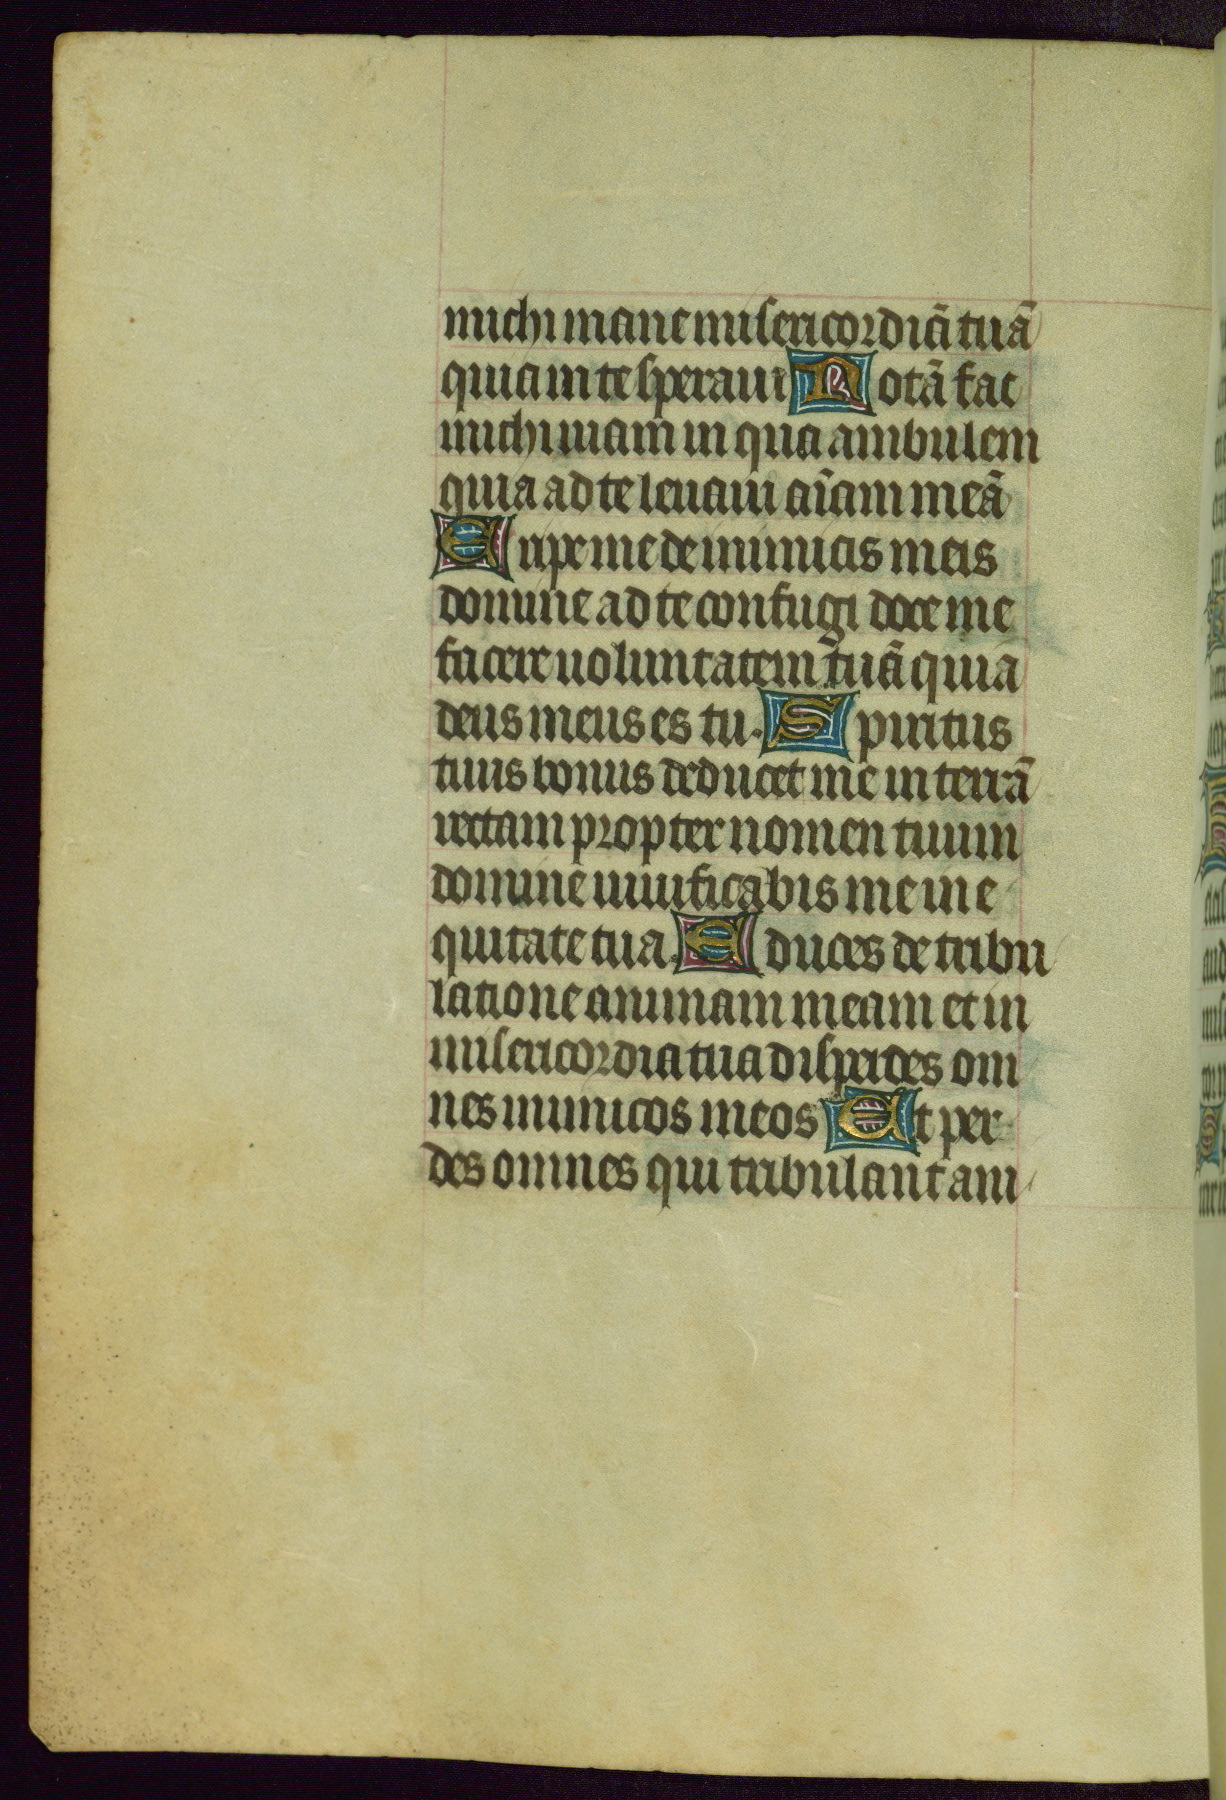 michi mane misericordiã tuã
quia in te speraui Notã fac
michi uiam in qua ambulem
quia ad te leuaui aĩam meã
Eripe me de inimicis meis
domine ad te confugi doce me
facere uoluntatem tuã quia
deus meus es tu. Spiritus
tuus bonus deducet me in terrã
rectam propter nomen tuum
domine uiuificabis me in e
quitate tua. Educes de tribu
latione animam meam et in
misericordia tua disperdes om
nes inimicos meos Et per
des omnes qui tribulant ani